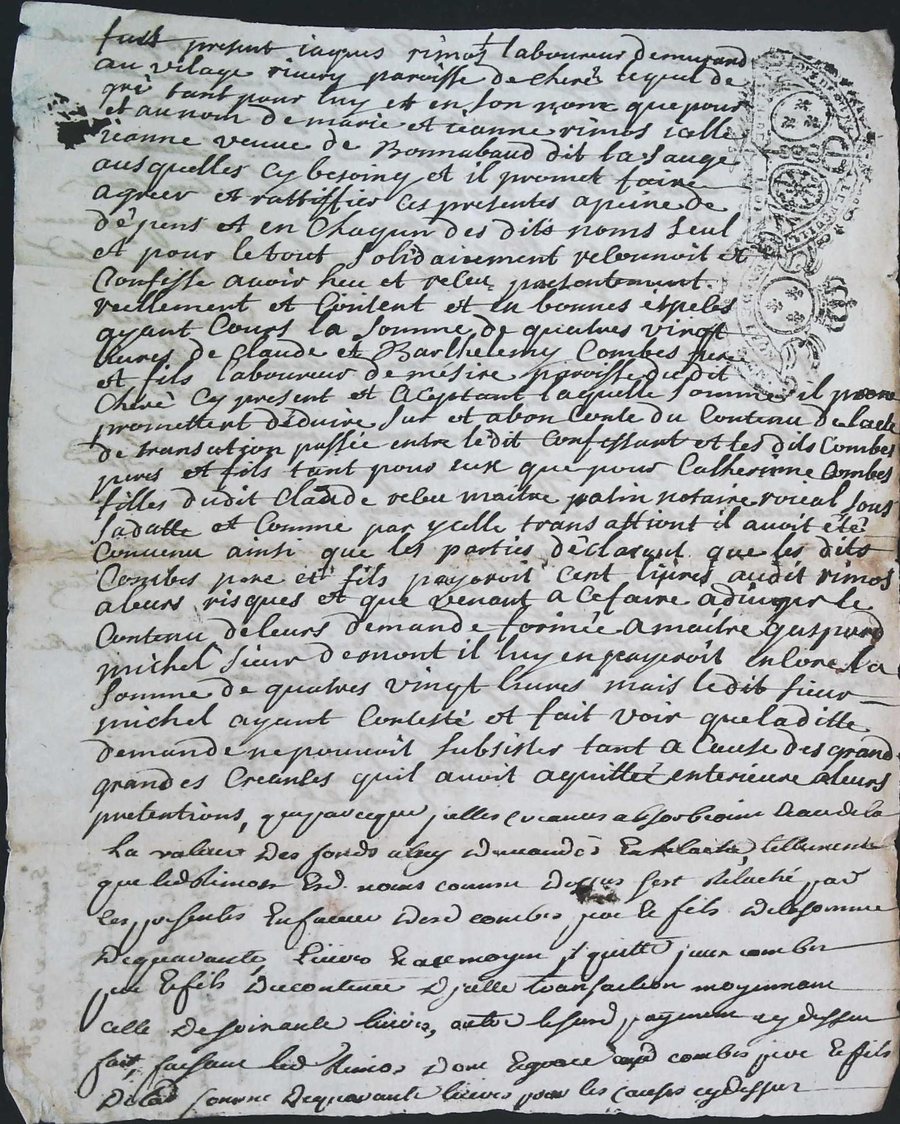 fust present iaques rimos laboureur demurand
au vilage riuery paroisse de cheré lequel de
gré tant pour luy et en son nom que pour
et au nom de marie et ieanne rimos icelle
ieanne veuue de Bonnabaud dit la sauge
ausquelles cy besoing et il promet faire
agreer et rattiffier ces presentes a peine de
dépens et en Chaqun des dits noms seul
et pour le tout solidairement reconnoit et
Confesse auoir heu et receu presentement
reellement et Content et en bonnes espeses
ayant Cours la somme de quatres vingt
liures de Claude et Barthelemy Combes pere
et fils laboureur de mesire paroisse dudit
Cheré cy present et aceptant laquelle somme il
promettent déduire sur et a bon conte du Contenu de lacte
de transation passée entre ledit Confessant et les dits Combes
peres et fils tant pour eux que pour Catherinne Combes
filles dudit Claude receu maitre patin notaire roieal sous
sa datte et Comme par ycelle transattiont il auoit été
Conuenu ainsi que les parties déclarent que les dits
Combes pere et fils payeroit cent liures audit rimos
a leurs risques et que venant a ce faire adiuger le
Contenu de leurs demande formée a maitre gaspard
michel sieur desmont il luy en payeroit encore la
somme de quatres vingt liures mais ledit sieur
michel ayant Contesté et fait voir que laditte
demande ne pouuoit subsister tant a Cause des grand
grandes Creances quil auoit aquittéz enterieure a leurs
pretentions, que parceque jcelles creances absorboient au dela
la valeur des fonds a luy demandés
que led Rimos esd. noms comme dessus sest relaché par
les presentes en faueur desd combes pere et fils de la somme
de quarante liures et a ce moyen jl quitte combes
pere et fils du contenu djcelle transaction moyennant
celle de soixante liures, outre le payement cy dessus
fait, faisant led Rimos don et grace combes pere et fils
de lad somme de quarante liures pour les causes cy dessus